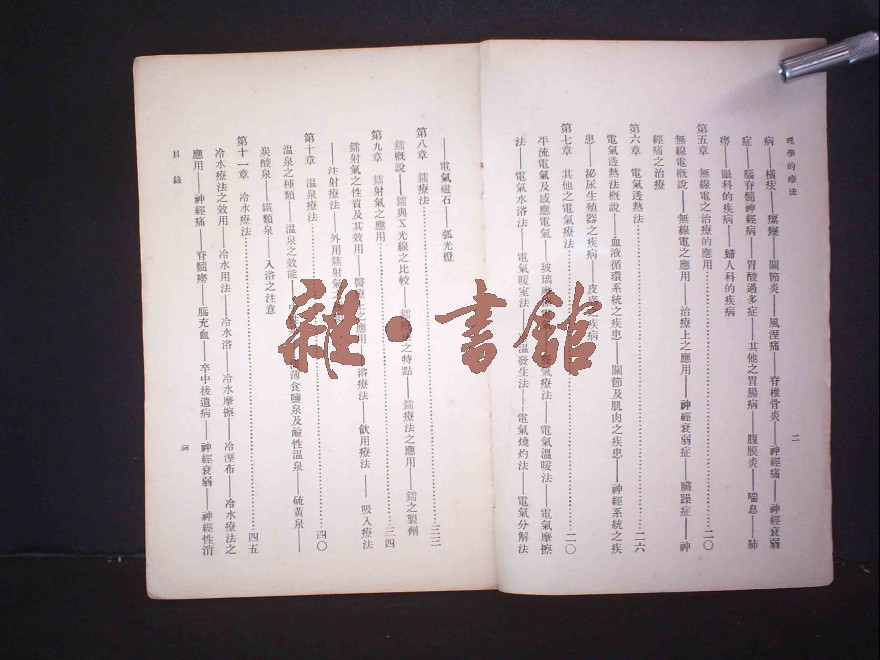 理學的療法
二
病——橫痃——瘰癧——關節炎——風溼痛——脊椎骨炎——神經痛——神經衰弱
症——腦脊髓神經病——胃酸過多症——其他之胃腸病——腹膜炎——喘息——肺
癆——眼科的疾病——婦人科的疾病
第五章 無線電之治療的應用……二〇
無線電概說——無線電之應用——治療上之應用——神經衰弱症——臟躁症——神
經痛之治療
第六章 電氣透熱法……二六
電氣透熱法概說——血液循環系統之疾患——關節及肌肉之疾患——神經系統之疾
患——泌尿生殖器之疾病——皮膚之疾病
第七章 其他之電氣療法……二〇
平流電氣及感應電氣——玻璃 電氣療法——電氣溫暖法——電氣摩擦
法——電氣水浴法——電氣暖室法 溫發生法——電氣燒灼法——電氣分解法
——電氣磁石——弧光燈
第八章 鐳療法……三三
鐳概說——鐳與X光線之比較——鐳療法之特點——鐳療法之應用——鐳之製劑
第九章 鐳射氣之應用……三四
鐳射氣之性質及其效用——醫療上之應用——浴療法——飲用療法——吸入療法
——注射療法——外用鐳射氣
第十章 溫泉療法……四〇
溫泉之種類——溫泉之效能 薄食鹽泉及鹼性溫泉——硫黃泉——
炭酸泉——鐵類泉——入浴之注意
第十一章 冷水療法……四五
冷水療法之效用——冷水用法——冷水浴——冷水摩擦——冷溼布——冷水療法之
應用——神經痛——脊髓癆——腦充血——卒中後遺病——神經衰弱——神經性消
目錄
三
雜·書館